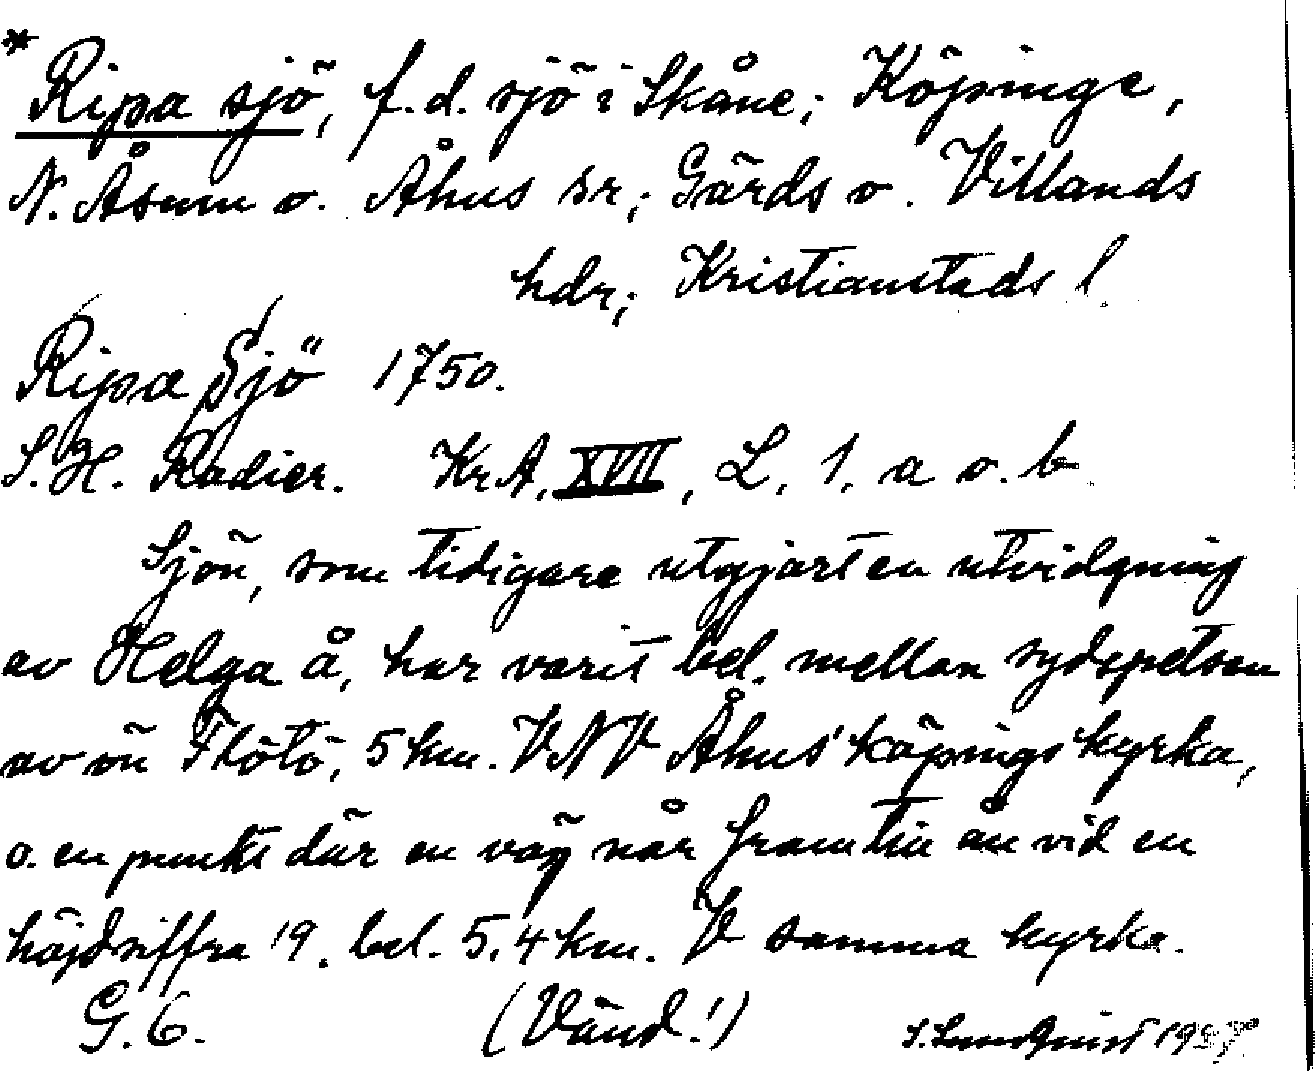 * Ripa sjö, f.d. sjö i Skåne; Köpinge,
N. Åsum o. Åhus sr; Gärds o. Villands
hdr; Kristianstads l.
Ripa Sjö 1750.
S. H. Radier. KrA, XVII, L, 1, a o. b
Sjön, som tidigare utgjort en utvidgning
av Helga å, har varit bel. mellan sydspetsen
av ön Flötö, 5 km. VNV Åhus' köpings kyrka,
o. en punkt där en väg når fram till ån vid en
höjdsiffra 19, bel. 5,4 km. V samma kyrka.
G. 6. (Vänd!)